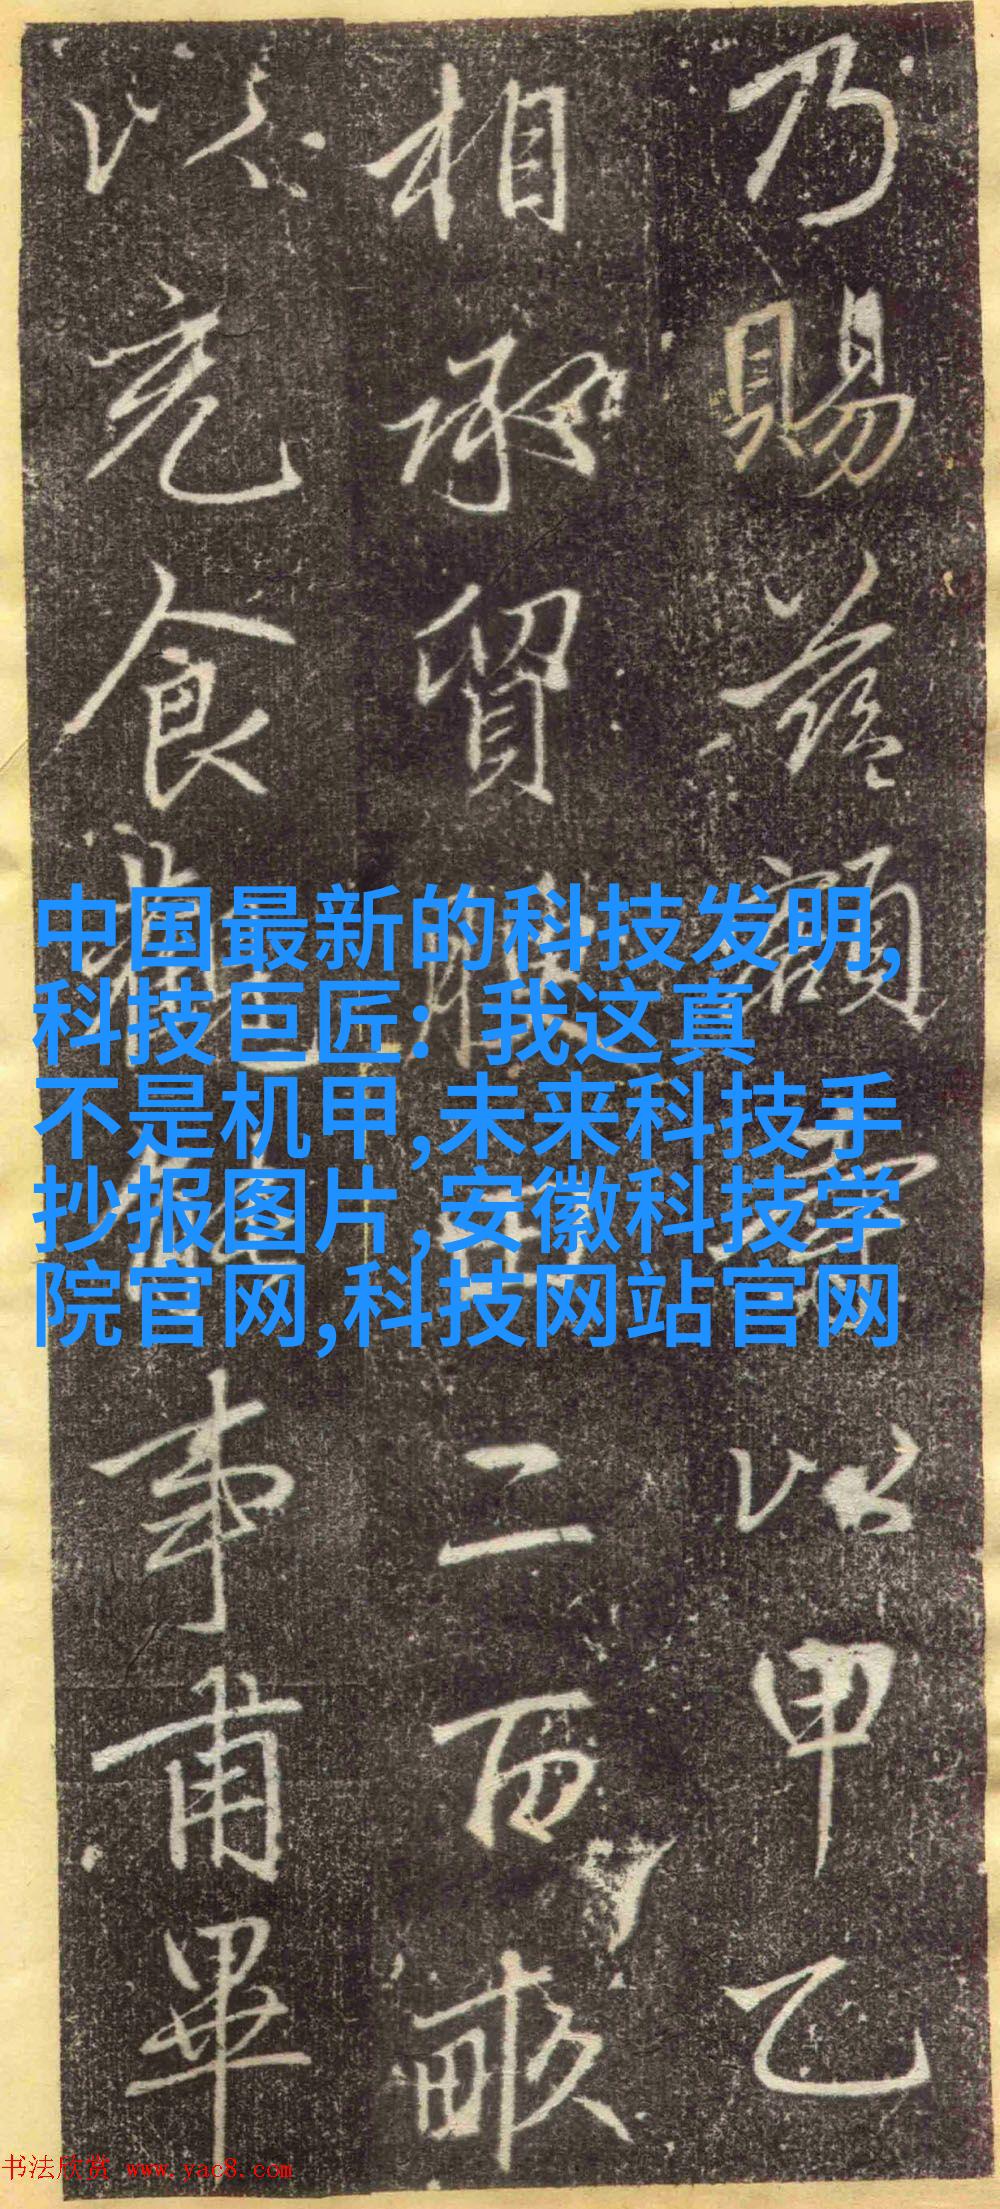 乃賜額以甲乙
相承貿腴田二百畝
以充食事甫畢
中国最新的科技发明,
科技巨匠：我这真
不是机甲,未来科技手
抄报图片,安徽科技学
院官网,科技网站官网
书法欣赏 www.yac8.com